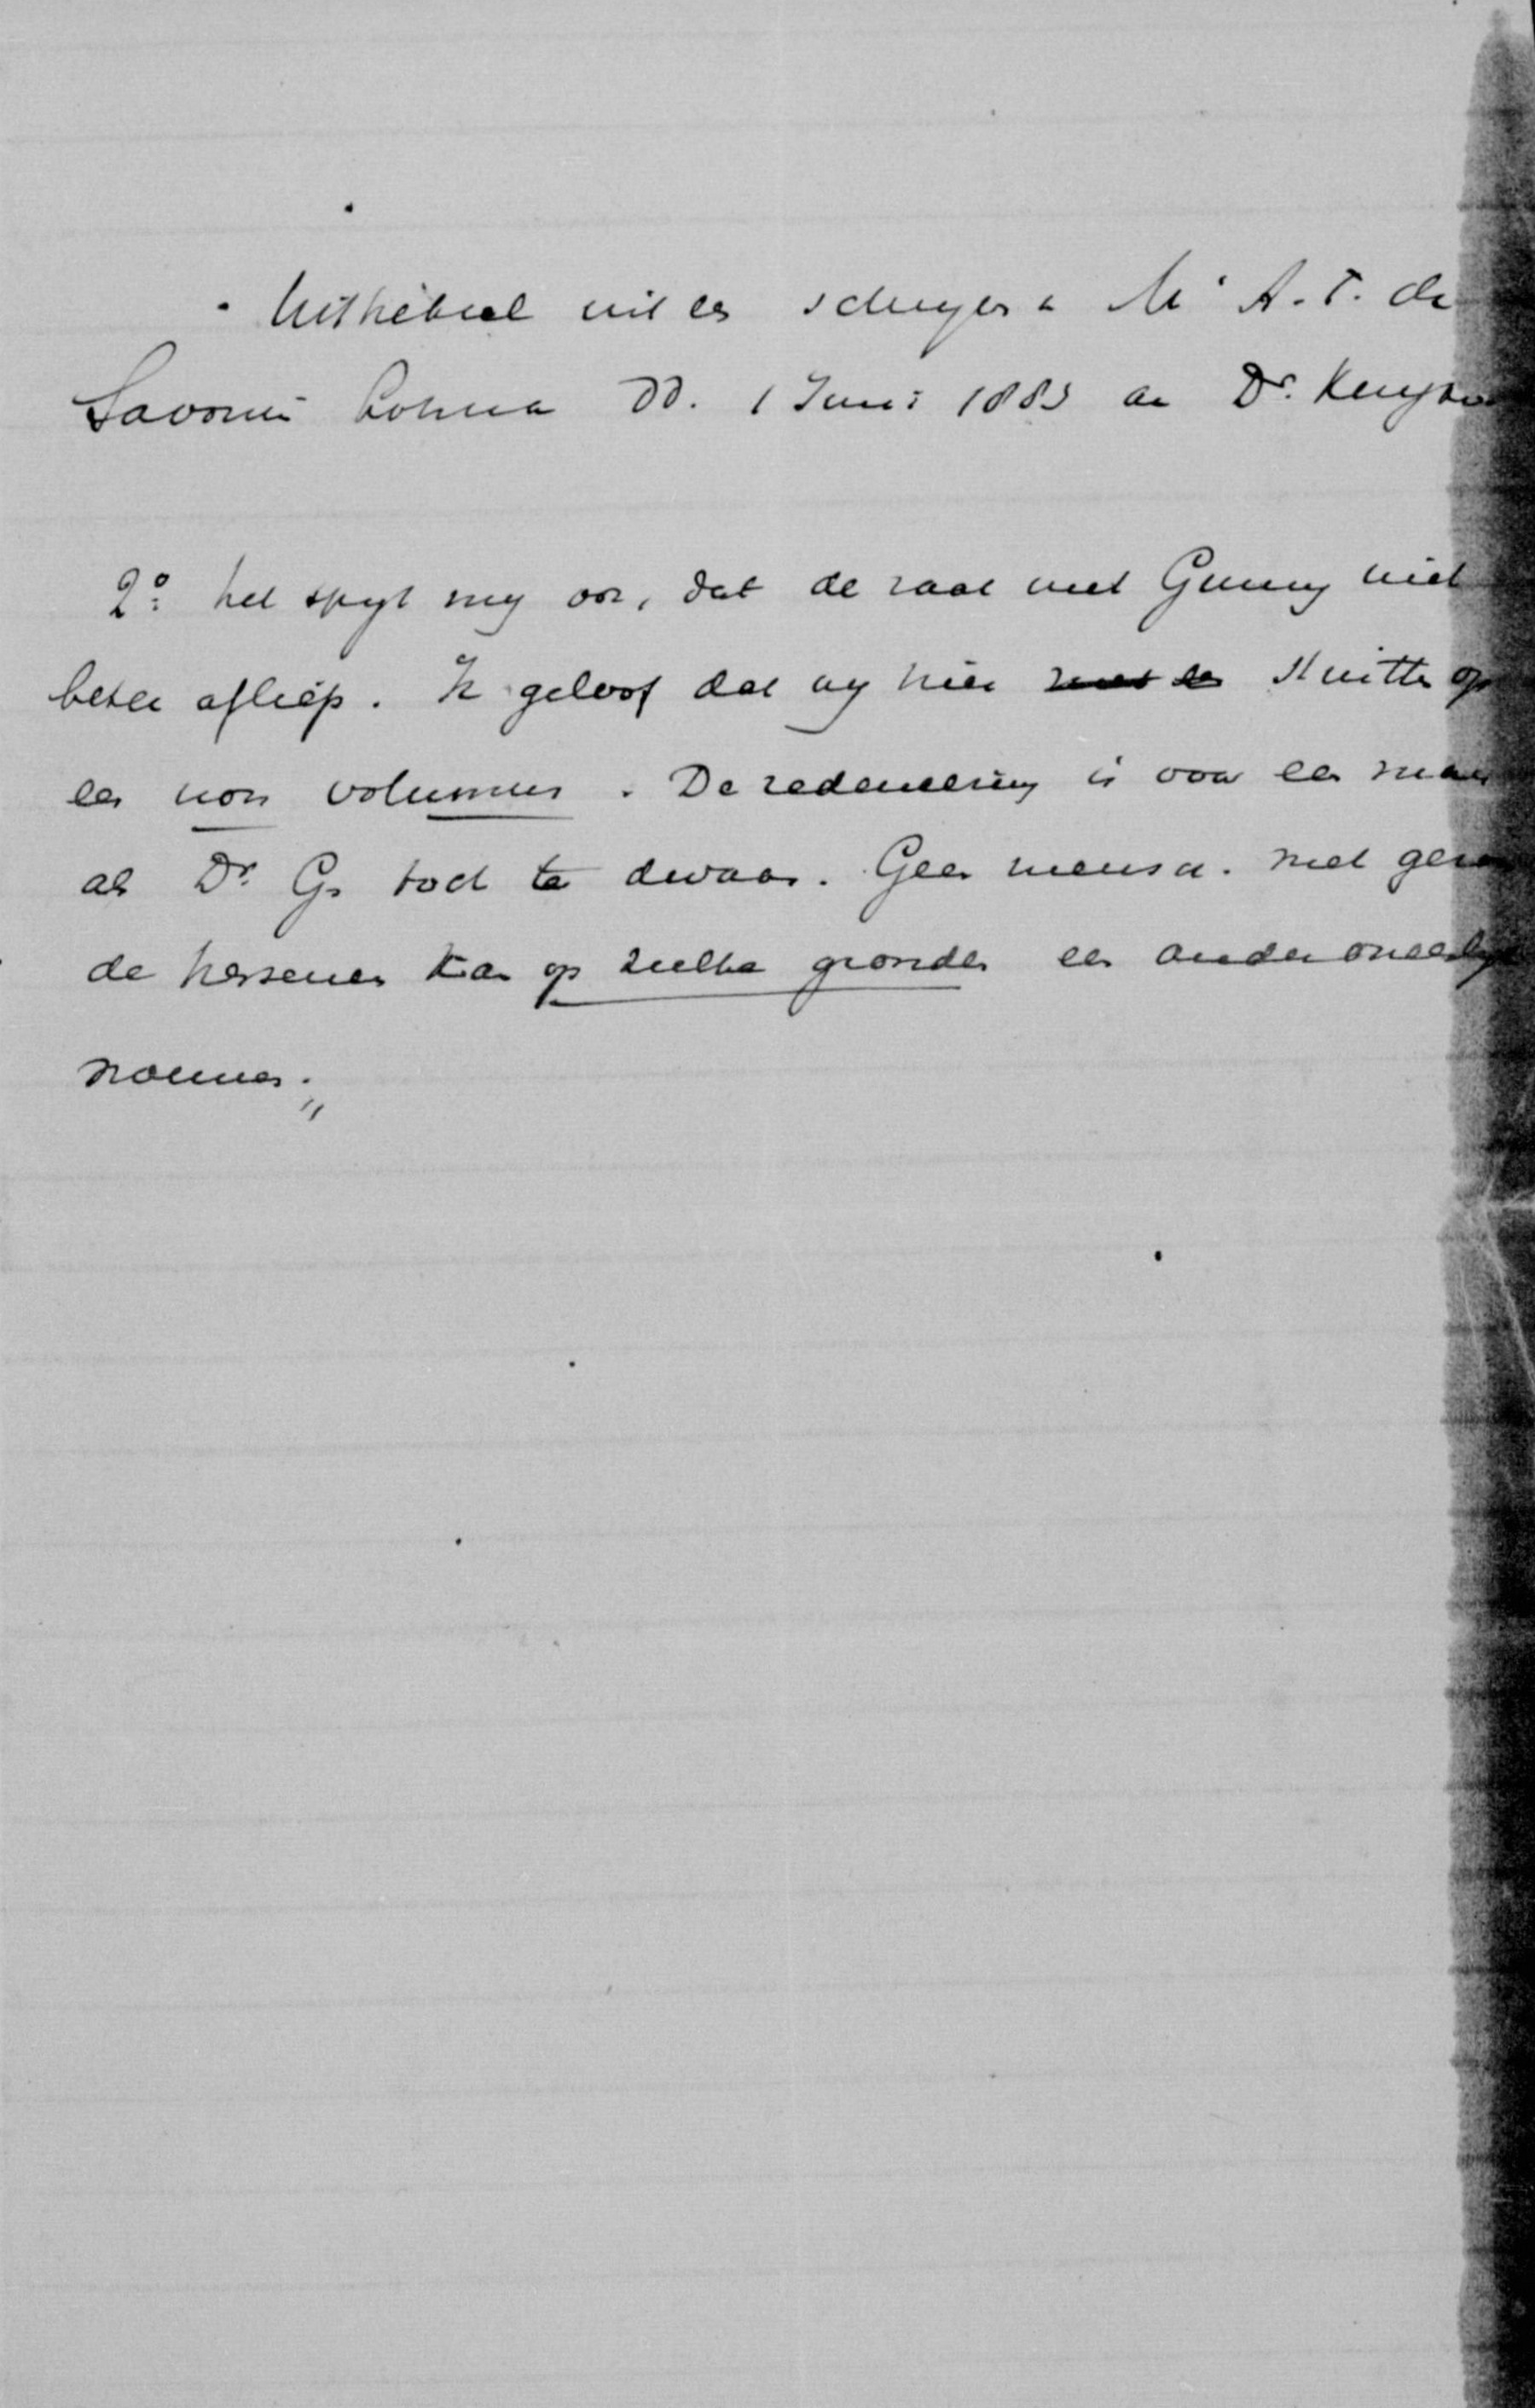 Uittreksel uit een schrijven v. Mr A. F. de
Savornin Lohman dd. 1 Juni 1885 aan Dr. Kuyper
2o: het spijt mij ook, dat de zaak met Gunning niet
beter afliep. Ik geloof dat wij hier stuitten op
een non volumus. De redeneering is voor een man
als Dr. G. toch te dwaas. Geen mensch met gezon
de hersenen kan op zulke gronden een ander oneerlijk
noemen."